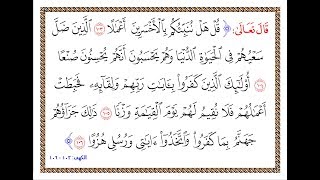 قَالَ تَعَالَى: ﴿ قُلْ هَلْ نُنَبِّئُكُم بِٱلْأَخْسَرِينَ أَعْمَٰلًا ١٠٣ ٱلَّذِينَ ضَلَّ
سَعْيُهُمْ فِى ٱلْحَيَوٰةِ ٱلدُّنْيَا وَهُمْ يَحْسَبُونَ أَنَّهُمْ يُحْسِنُونَ صُنْعًا
١٠٤ أُو۟لَٰٓئِكَ ٱلَّذِينَ كَفَرُوا۟ بِـَٔايَٰتِ رَبِّهِمْ وَلِقَآئِهِۦ فَحَبِطَتْ
أَعْمَٰلُهُمْ فَلَا نُقِيمُ لَهُمْ يَوْمَ ٱلْقِيَٰمَةِ وَزْنًا ١٠٥ ذَٰلِكَ جَزَآؤُهُمْ
جَهَنَّمُ بِمَا كَفَرُوا۟ وَٱتَّخَذُوٓا۟ ءَايَٰتِى وَرُسُلِى هُزُوًا ١٠٦ ﴾
الكهف: ١٠٣ - ١٠٦